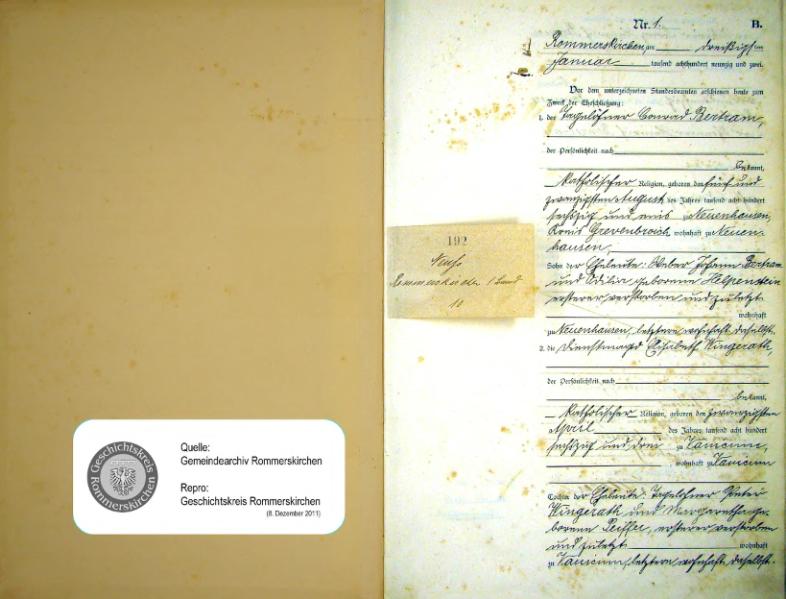 Quelle:
Gemeindearchiv Rommerskirchen
Repro:
Geschichtskreis Rommerskirchen
(8. Dezember 2011)
Geschichtskreis
Rommerskirchen
192
Neuß
Rommerskirchen 1 Band
10
Nr. 1. B.
Rommerskirchen am dreißigsten
Januar tausend achthundert neunzig und zwei.
Vor dem unterzeichneten Standesbeamten erschienen heute zum
Zweck der Eheschließung:
1. der Tagelöhner Conrad Bertram,
der Persönlichkeit nach
bekannt,
katholischer Religion, geboren den fünf und
zwanzigsten August des Jahres tausend acht hundert
sechszig und eins zu Neuenhausen,
Kreis Grevenbroich, wohnhaft zu Neuen-
hausen,
Sohn der Eheleute: Weber Johann Bertram
und Odilia geborene Helpenstein
ersterer verstorben und zuletzt
wohnhaft
zu Neuenhausen, letztere wohnhaft daselbst.
2. die Dienstmagd Elisabeth Wingerath,
der Persönlichkeit nach
bekannt,
katholischer Religion, geboren den zwanzigsten
April des Jahres tausend acht hundert
sechszig und drei zu Vanicum,
wohnhaft zu Vanicum
Tochter der Eheleute: Tagelöhner Peter
Wingerath und Margaretha ge-
borene Peiffer, ersterer verstorben
und zuletzt wohnhaft
zu Vanicum, letztere wohnhaft daselbst.